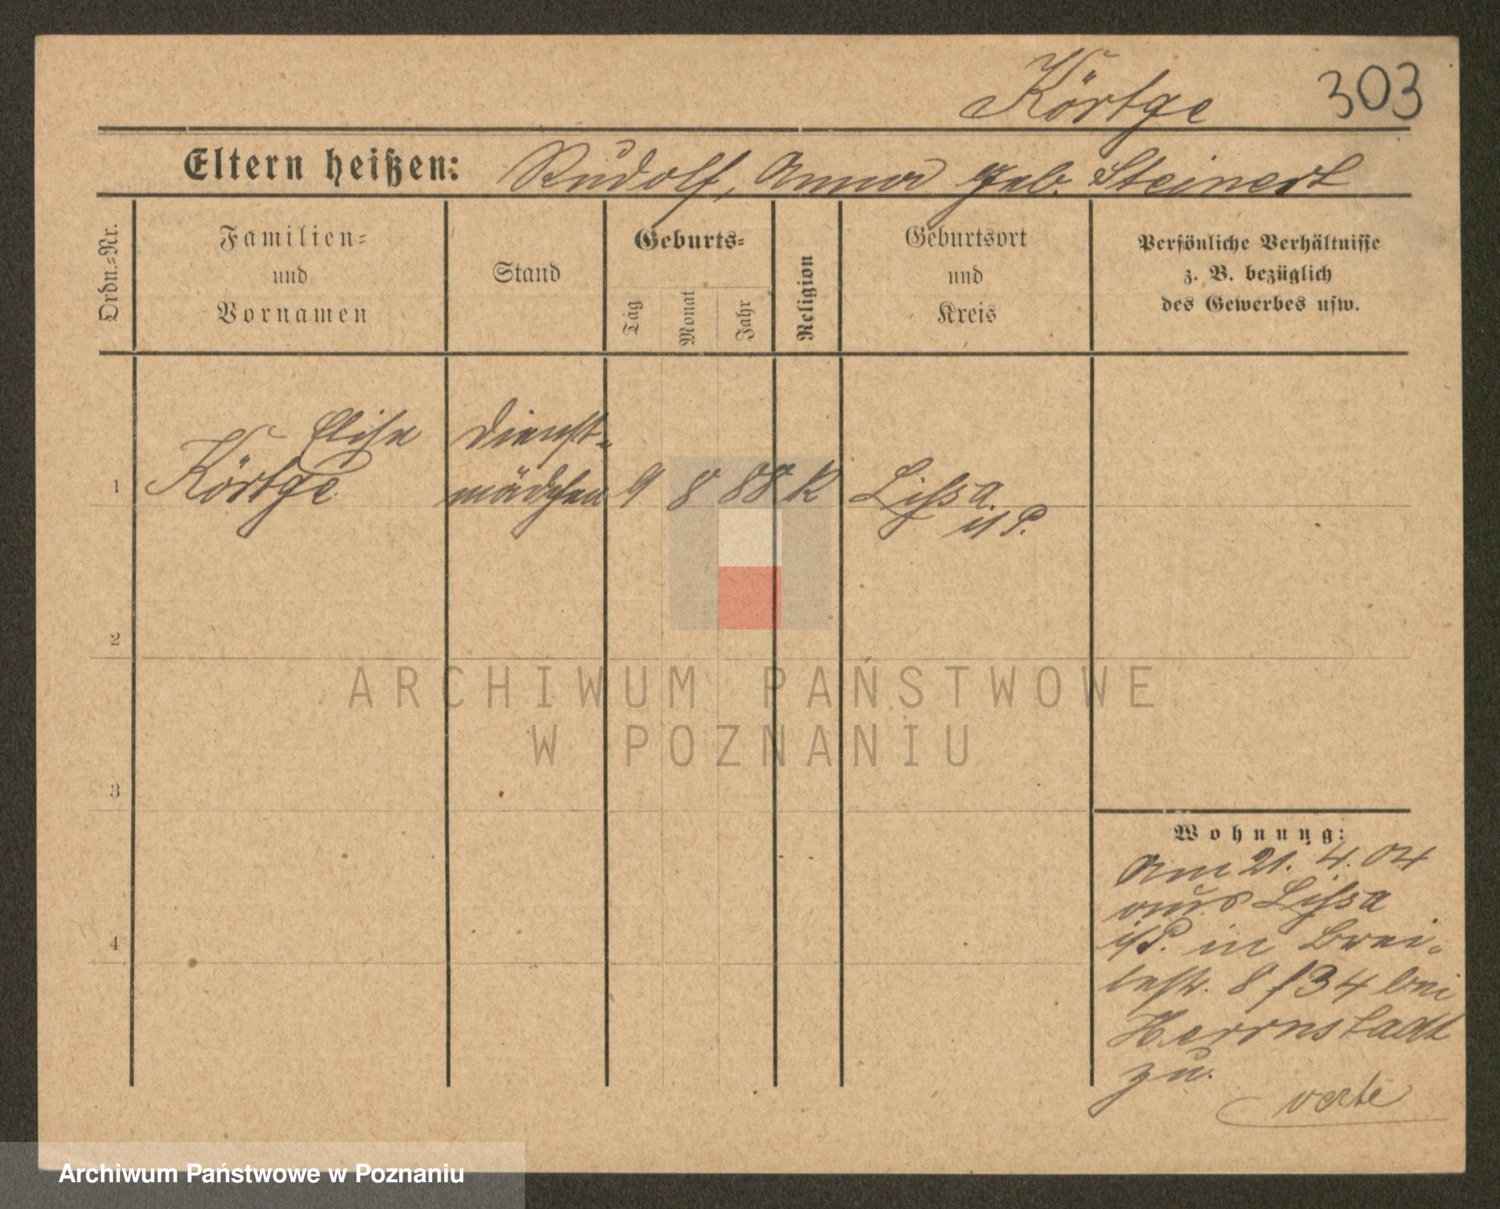 Körtge 303
Eltern heißen: Rudolf, Anna geb. Steinert
Ordn.-Nr. Familien- und Vornamen Stand Geburts- Tag Monat Jahr Religion Geburtsort und Kreis Persönliche Verhältnisse z. B. bezüglich des Gewerbes usw.
Elise Dienst-
1 Körtge mädchen 9 8 88 K Lissa
i/P.
2
ARCHIWUM PAŃSTWOWE
W POZNANIU
3
Wohnung:
Am 21. 4. 04
aus Lissa
4 i/P. in Brei-
testr. 8/34 bei
Herrnstadt
zu.
verte
Archiwum Państwowe w Poznaniu